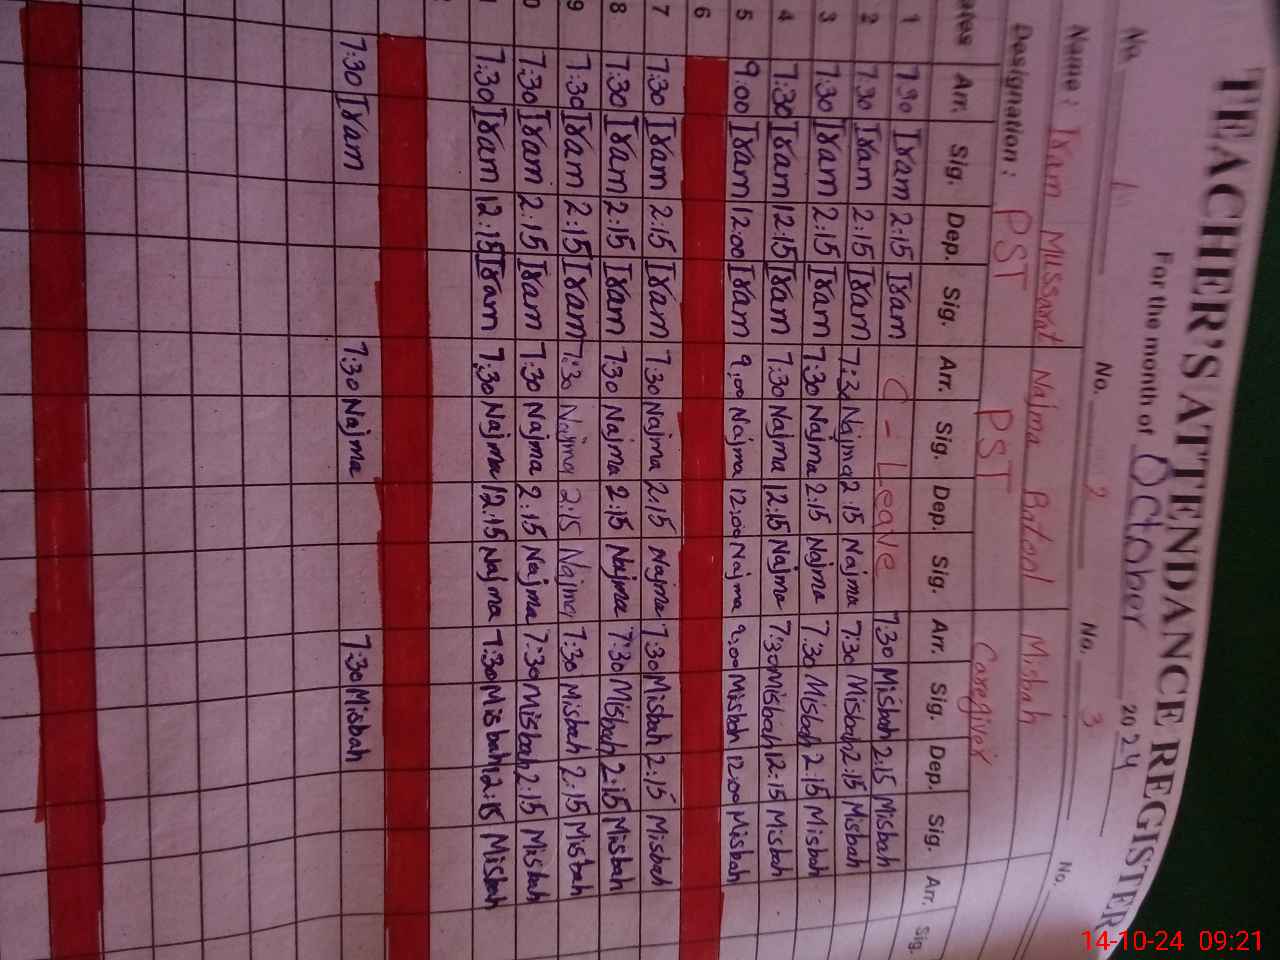 TEACHER'S ATTENDANCE REGISTER
For the month of October 2024
No. 1 No. 2 No. 3 No.
Name: Iram Mussarat Najma Batool Misbah
Designation: PST PST Caregiver
Arr. Sig. Dep. Sig. Arr. Sig. Dep. Sig. Arr. Sig. Dep. Sig. Arr. Sig.
1 7:30 Iram 2:15 Iram C - Leave 7:30 Misbah 2:15 Misbah
2 7:30 Iram 2:15 Iram 7:30 Najma 2:15 Najma 7:30 Misbah 2:15 Misbah
3 7:30 Iram 2:15 Iram 7:30 Najma 2:15 Najma 7:30 Misbah 2:15 Misbah
4 7:30 Iram 12:15 Iram 7:30 Najma 12:15 Najma 7:30 Misbah 12:15 Misbah
5 9:00 Iram 12:00 Iram 9:00 Najma 12:00 Najma 9:00 Misbah 12:00 Misbah
6
7 7:30 Iram 2:15 Iram 7:30 Najma 2:15 Najma 7:30 Misbah 2:15 Misbah
8 7:30 Iram 2:15 Iram 7:30 Najma 2:15 Najma 7:30 Misbah 2:15 Misbah
9 7:30 Iram 2:15 Iram 7:30 Najma 2:15 Najma 7:30 Misbah 2:15 Misbah
7:30 Iram 2:15 Iram 7:30 Najma 2:15 Najma 7:30 Misbah 2:15 Misbah
7:30 Iram 12:15 Iram 7:30 Najma 12:15 Najma 7:30 Misbah 12:15 Misbah
7:30 Iram 7:30 Najma 7:30 Misbah
14-10-24 09:21